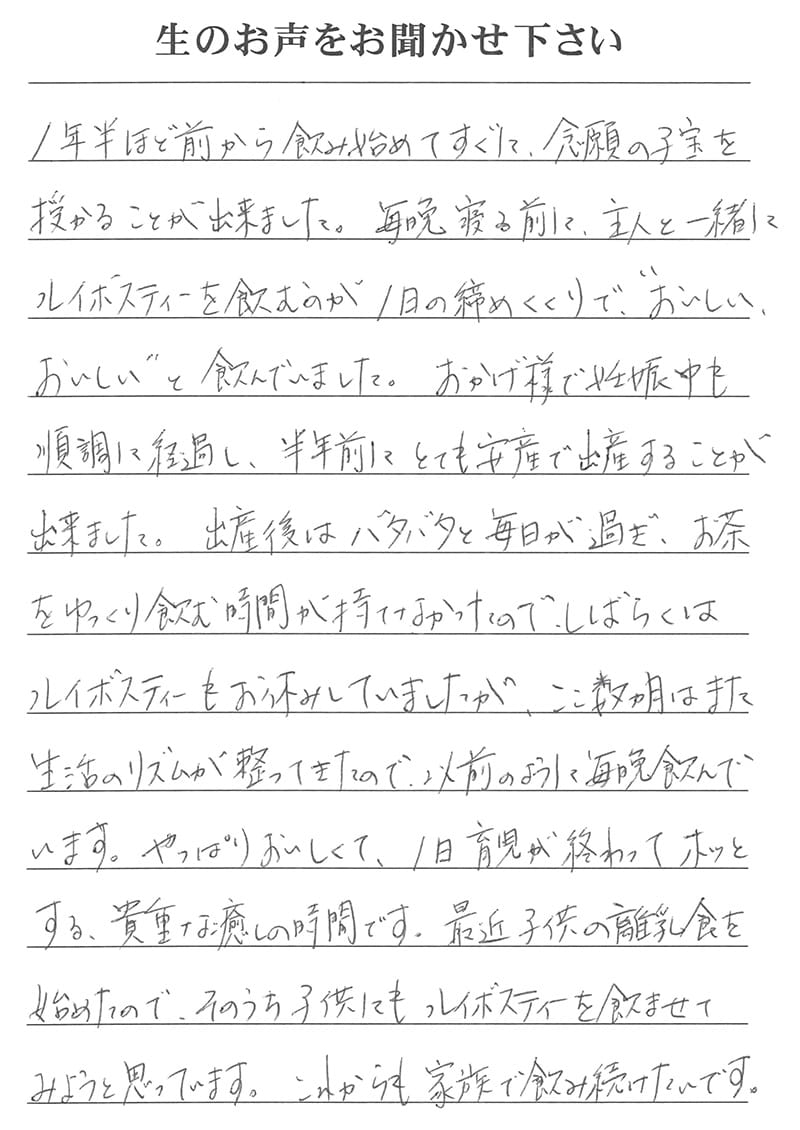 生のお声をお聞かせ下さい
1年半ほど前から飲み始めてすぐに、念願の子宝を
授かることが出来ました。毎晩寝る前に、主人と一緒に
ルイボスティーを飲むのが1日の締めくくりで、"おいしい、
おいしい"と飲んでいました。おかげ様で妊娠中も
順調に経過し、半年前にとても安産で出産することが
出来ました。出産後はバタバタと毎日が過ぎ、お茶
をゆっくり飲む時間が持てなかったので、しばらくは
ルイボスティーもお休みしていましたが、ここ数ヵ月はまた
生活のリズムが整ってきたので、以前のように毎晩飲んで
います。やっぱりおいしくて、1日育児が終わってホッと
する、貴重な癒しの時間です。最近子供の離乳食を
始めたので、そのうち子供にもルイボスティーを飲ませて
みようと思っています。これからも家族で飲み続けたいです。